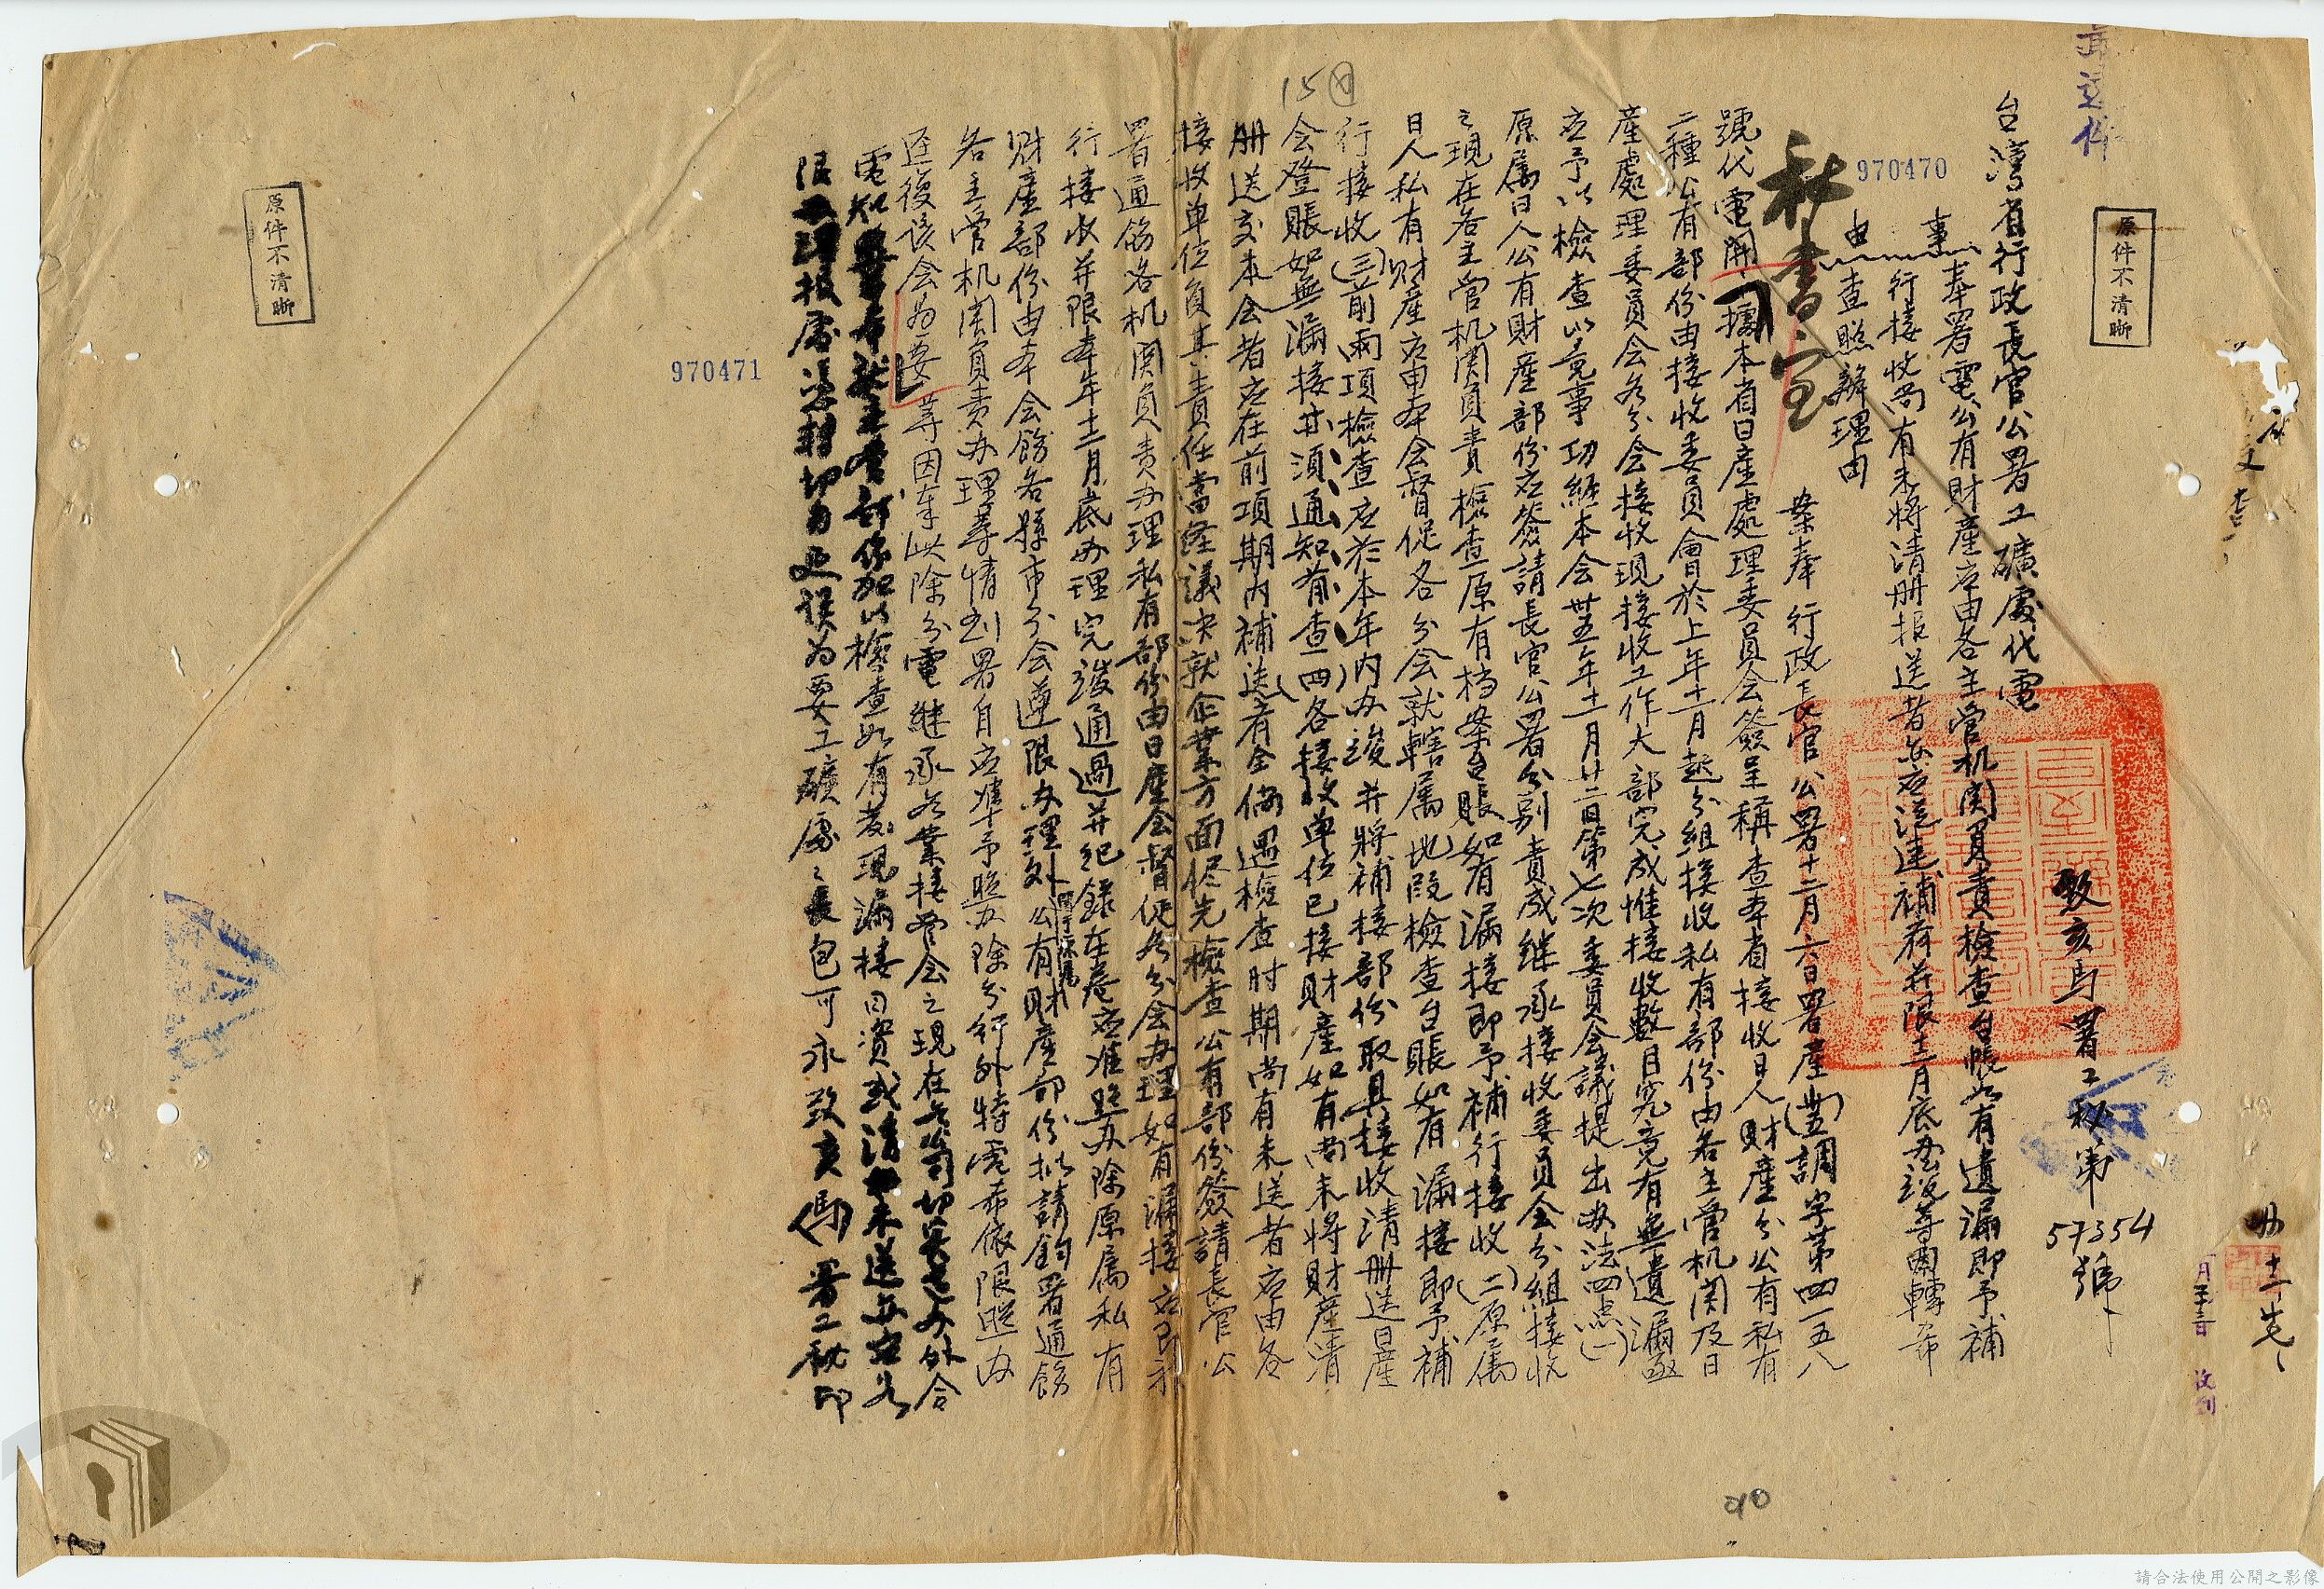 台湾省行政長官公署工礦處代電
致亥馬署工秘第57354號
事由
奉署電公有財產应由各主管机関負責檢查台帳如有遺漏即予補
行接收尚有未將清册报送者亦应迅速補送并限十二月底办竣等因轉希
查照辦理由
秘書室
案奉 行政長官公署十二月六日署產(丑)調字第四一五八
號代電開「據本省日產處理委員会簽呈稱查本省接收日人財產分公有私有
二種公有部份由接收委員會於上年十一月起分組接收私有部份由各主管机関及日
產處理委員会各分会接收現接收工作大部完成惟接收數目究竟有無遺漏亟
应予以檢查以竟事功經本会卅五年十一月廿二日第七次委員会議提出办法四点(一)
原属日人公有財產部份应簽請長官公署分別責成継承接收委員会分組接收
之現在各主管机関負責檢查原有档案台賬如有漏接即予補行接收(二)原属
日人私有財產应由本会督促各分会就轄属地段檢查台賬如有漏接即予補
行接收(三)前兩項檢查应於本年內办竣并將補接部份取具接收清册送日產
会登賬如無漏接亦須通知备查(四)各接收单位已接財產如有尚未將財產清
册送交本会者应在前項期內補送者全倘遇檢查时期尚有未送者应由各
接收单位負其責任當経議决就企業方面侭先檢查公有部份簽請長官公
署通飭各机関負責办理私有部份由日產会督促各分会办理如有漏接应即補
行接收并限本年十二月底办理完竣通過并纪録在卷应准照办除原属私有
財產部份由本会飭各縣市分会遵限办理外関于原属公有財產部份拟請鈞署通飭
各主管机関負責办理等情到署自应准予照办除分行外特電希依限照办
逕復该会为要」等因奉此除分電継承各業接管会之現在各公司切实遵办外合
電知 希就主管部份加以檢查如有发現漏接日資或清册未送亦应如
限 报處 切勿延误为要工礦處處長包可永致亥(馬)署工秘印
970470
970471
原件不清晰
原件不清晰
15
90
請合法使用公開之影像